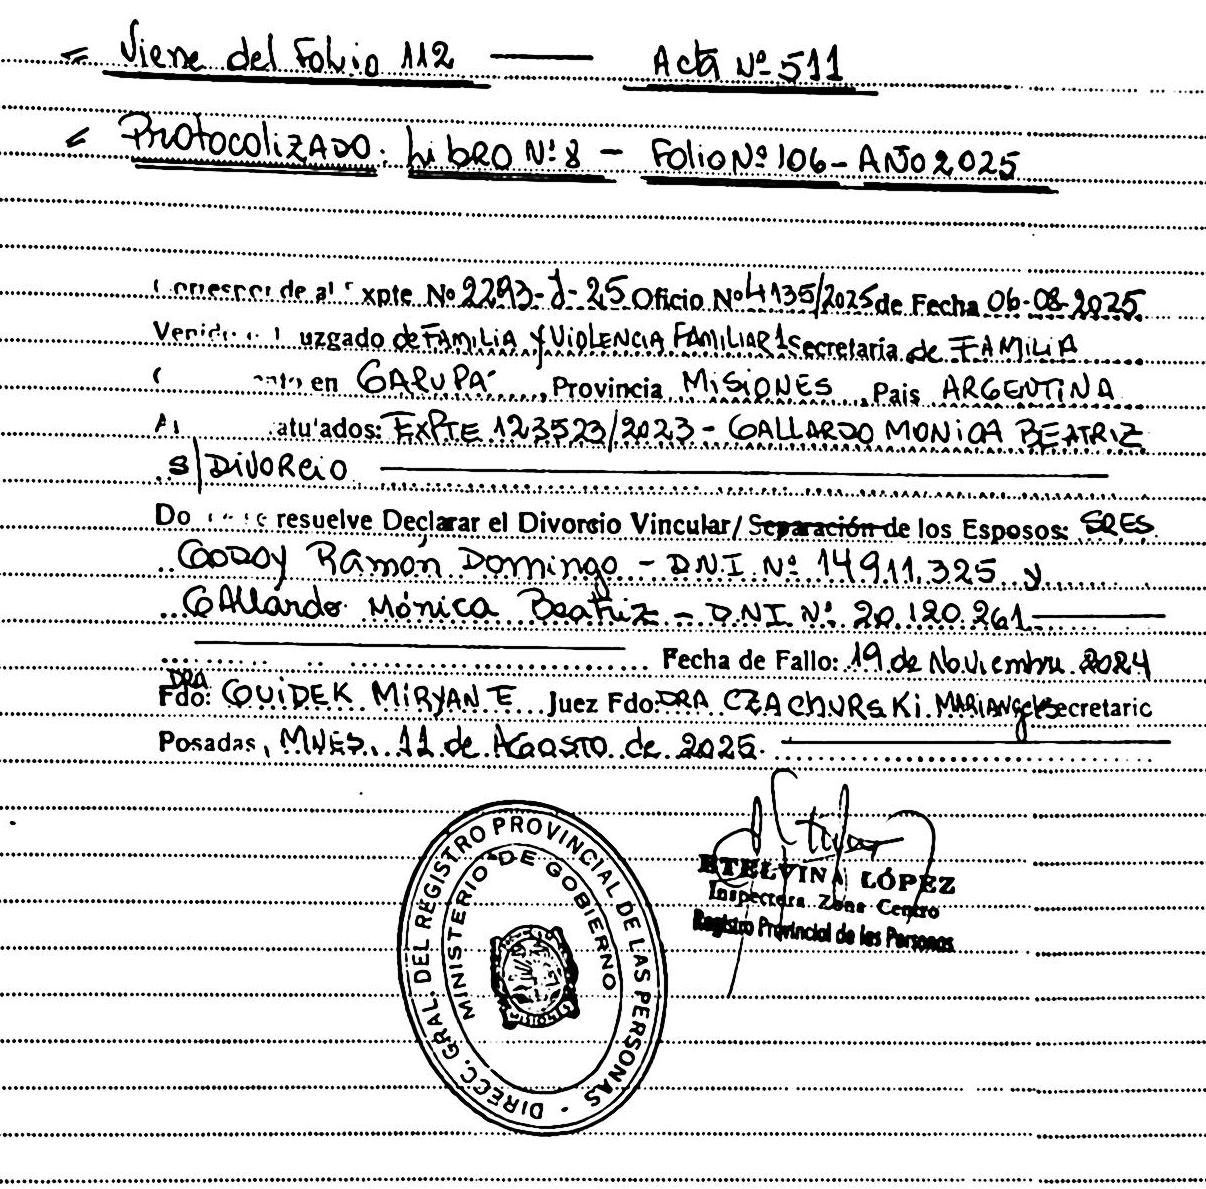 Viene del Folio 112 — Acta Nº 511
Protocolizado. Libro Nº 8 - Folio Nº 106 - Año 2025
de al Expte No 2293-J-25 Oficio Nº 4135/2025 de Fecha 06-08-2025
uzgado de FAMILIA Y VIOLENCIA FAMILIAR 1 Secretaria de FAMILIA
en GARUPA, Provincia MISIONES, Pais ARGENTINA
atu'ados: EXPTE 123523/2023 - GALLARDO MONICA BEATRIZ
S/DIVORCIO
Do resuelve Declarar el Divorcio Vincular/ Separación de los Esposos: SRES
Godoy Ramón Domingo - D.N.I. Nº 14.911.325 y
Gallardo Mónica Beatriz - D.N.I Nº 20.120.261
Fecha de Fallo: 19 de Noviembre 2024
DRA
Fdo: GUIDEK MIRYAN E Juez Fdo: DRA CZACHURSKI MARIANGEL Secretaric
Posadas, MNES, 11 de Agosto de 2025.
DIRECC. GRAL. DEL REGISTRO PROVINCIAL DE LAS PERSONAS -
MINISTERIO DE GOBIERNO
ETELVINA LÓPEZ
Inspectora Zona Centro
Registro Provincial de las Personas